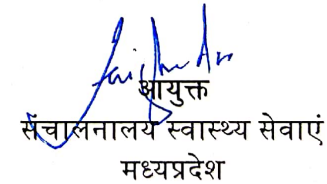 आयुक्त
संचालनालय स्वास्थ्य सेवाएं
मध्यप्रदेश